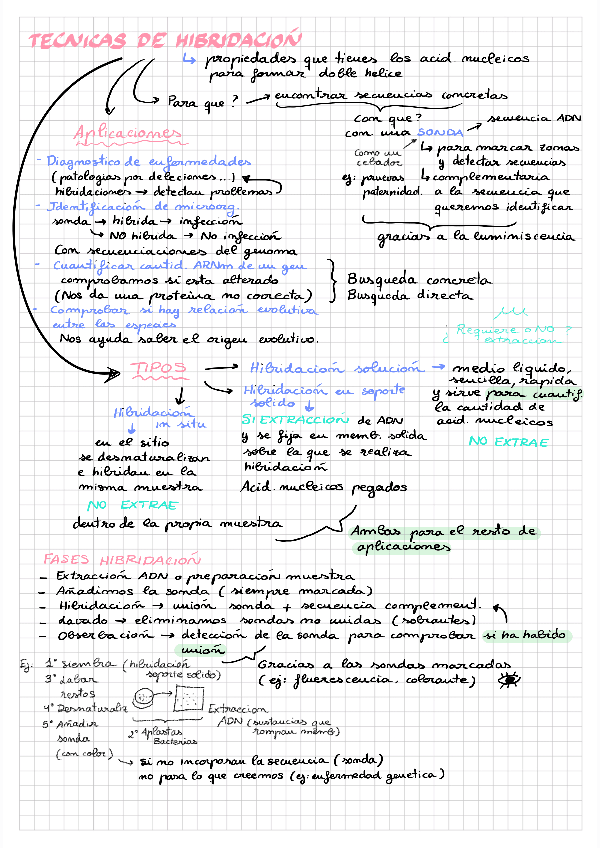 TECNICAS DE HIBRIDACIÓN
↳ propiedades que tienes los acid nucleicos
para formar doble helice
↳ Para que? → encontrar secuencias concretas
Con que?
con una SONDA → secuencia ADN
Como un celador
↳ para marcar zonas
y detectar secuencias
ej: pruebas paternidad.
↳ complementaria
a la secuencia que
queremos identificar
gracias a la luminiscencia
Aplicaciones
- Diagnostico de enfermedades
(patologías por delecciones...)
hibridaciones → detectan problemas
- Identificación de microorg.
sonda → hibrida → infección
↳ NO hibrida → No infección
Con secuenciaciones del genoma
- Cuantificar cantid. ARNm de un gen
comprobamos si esta alterado
(Nos da una proteina no correcta)
- Comprobar si hay relación evolutiva
entre las especies
Nos ayuda saber el origen evolutivo.
Busqueda concreta
Busqueda directa
¿Requiere o NO?
¿ extracción
TIPOS
→ Hibridación solución → medio liquido,
sencilla, rapida
y sirve para cuantif.
la cantidad de
acid. nucleicos
NO EXTRAE
→ Hibridación en soporte
solido ↓
SI EXTRACCIÓN de ADN
y se fija en memb. solida
sobre la que se realiza
hibridación
Acid. nucleicos pegados
↓
Hibridación
↓ in situ
en el sitio
se desnaturalizan
e hibridan en la
misma muestra
NO EXTRAE
dentro de la propia muestra
Ambas para el resto de
aplicaciones
FASES HIBRIDACIÓN
- Extracción ADN o preparación muestra
- Añadimos la sonda (siempre marcada)
- Hibridación → unión sonda + secuencia complement.
- Lavado → eliminamos sondas no unidas (sobrantes)
- Observación → detección de la sonda para comprobar si ha habido
unión
Gracias a las sondas marcadas
(ej: fluorescencia, colorante)
Ej: 1º siembra (hibridación
soporte solido)
3º Labar
restos
4º Desnaturaliz
5º Añadir
sonda
(con color)
2º Aplastas
Bacterias
Extraccion
ADN (sustancias que
rompan memb)
↳ si no incorporan la secuencia (sonda)
no para lo que creemos (ej: enfermedad genetica)